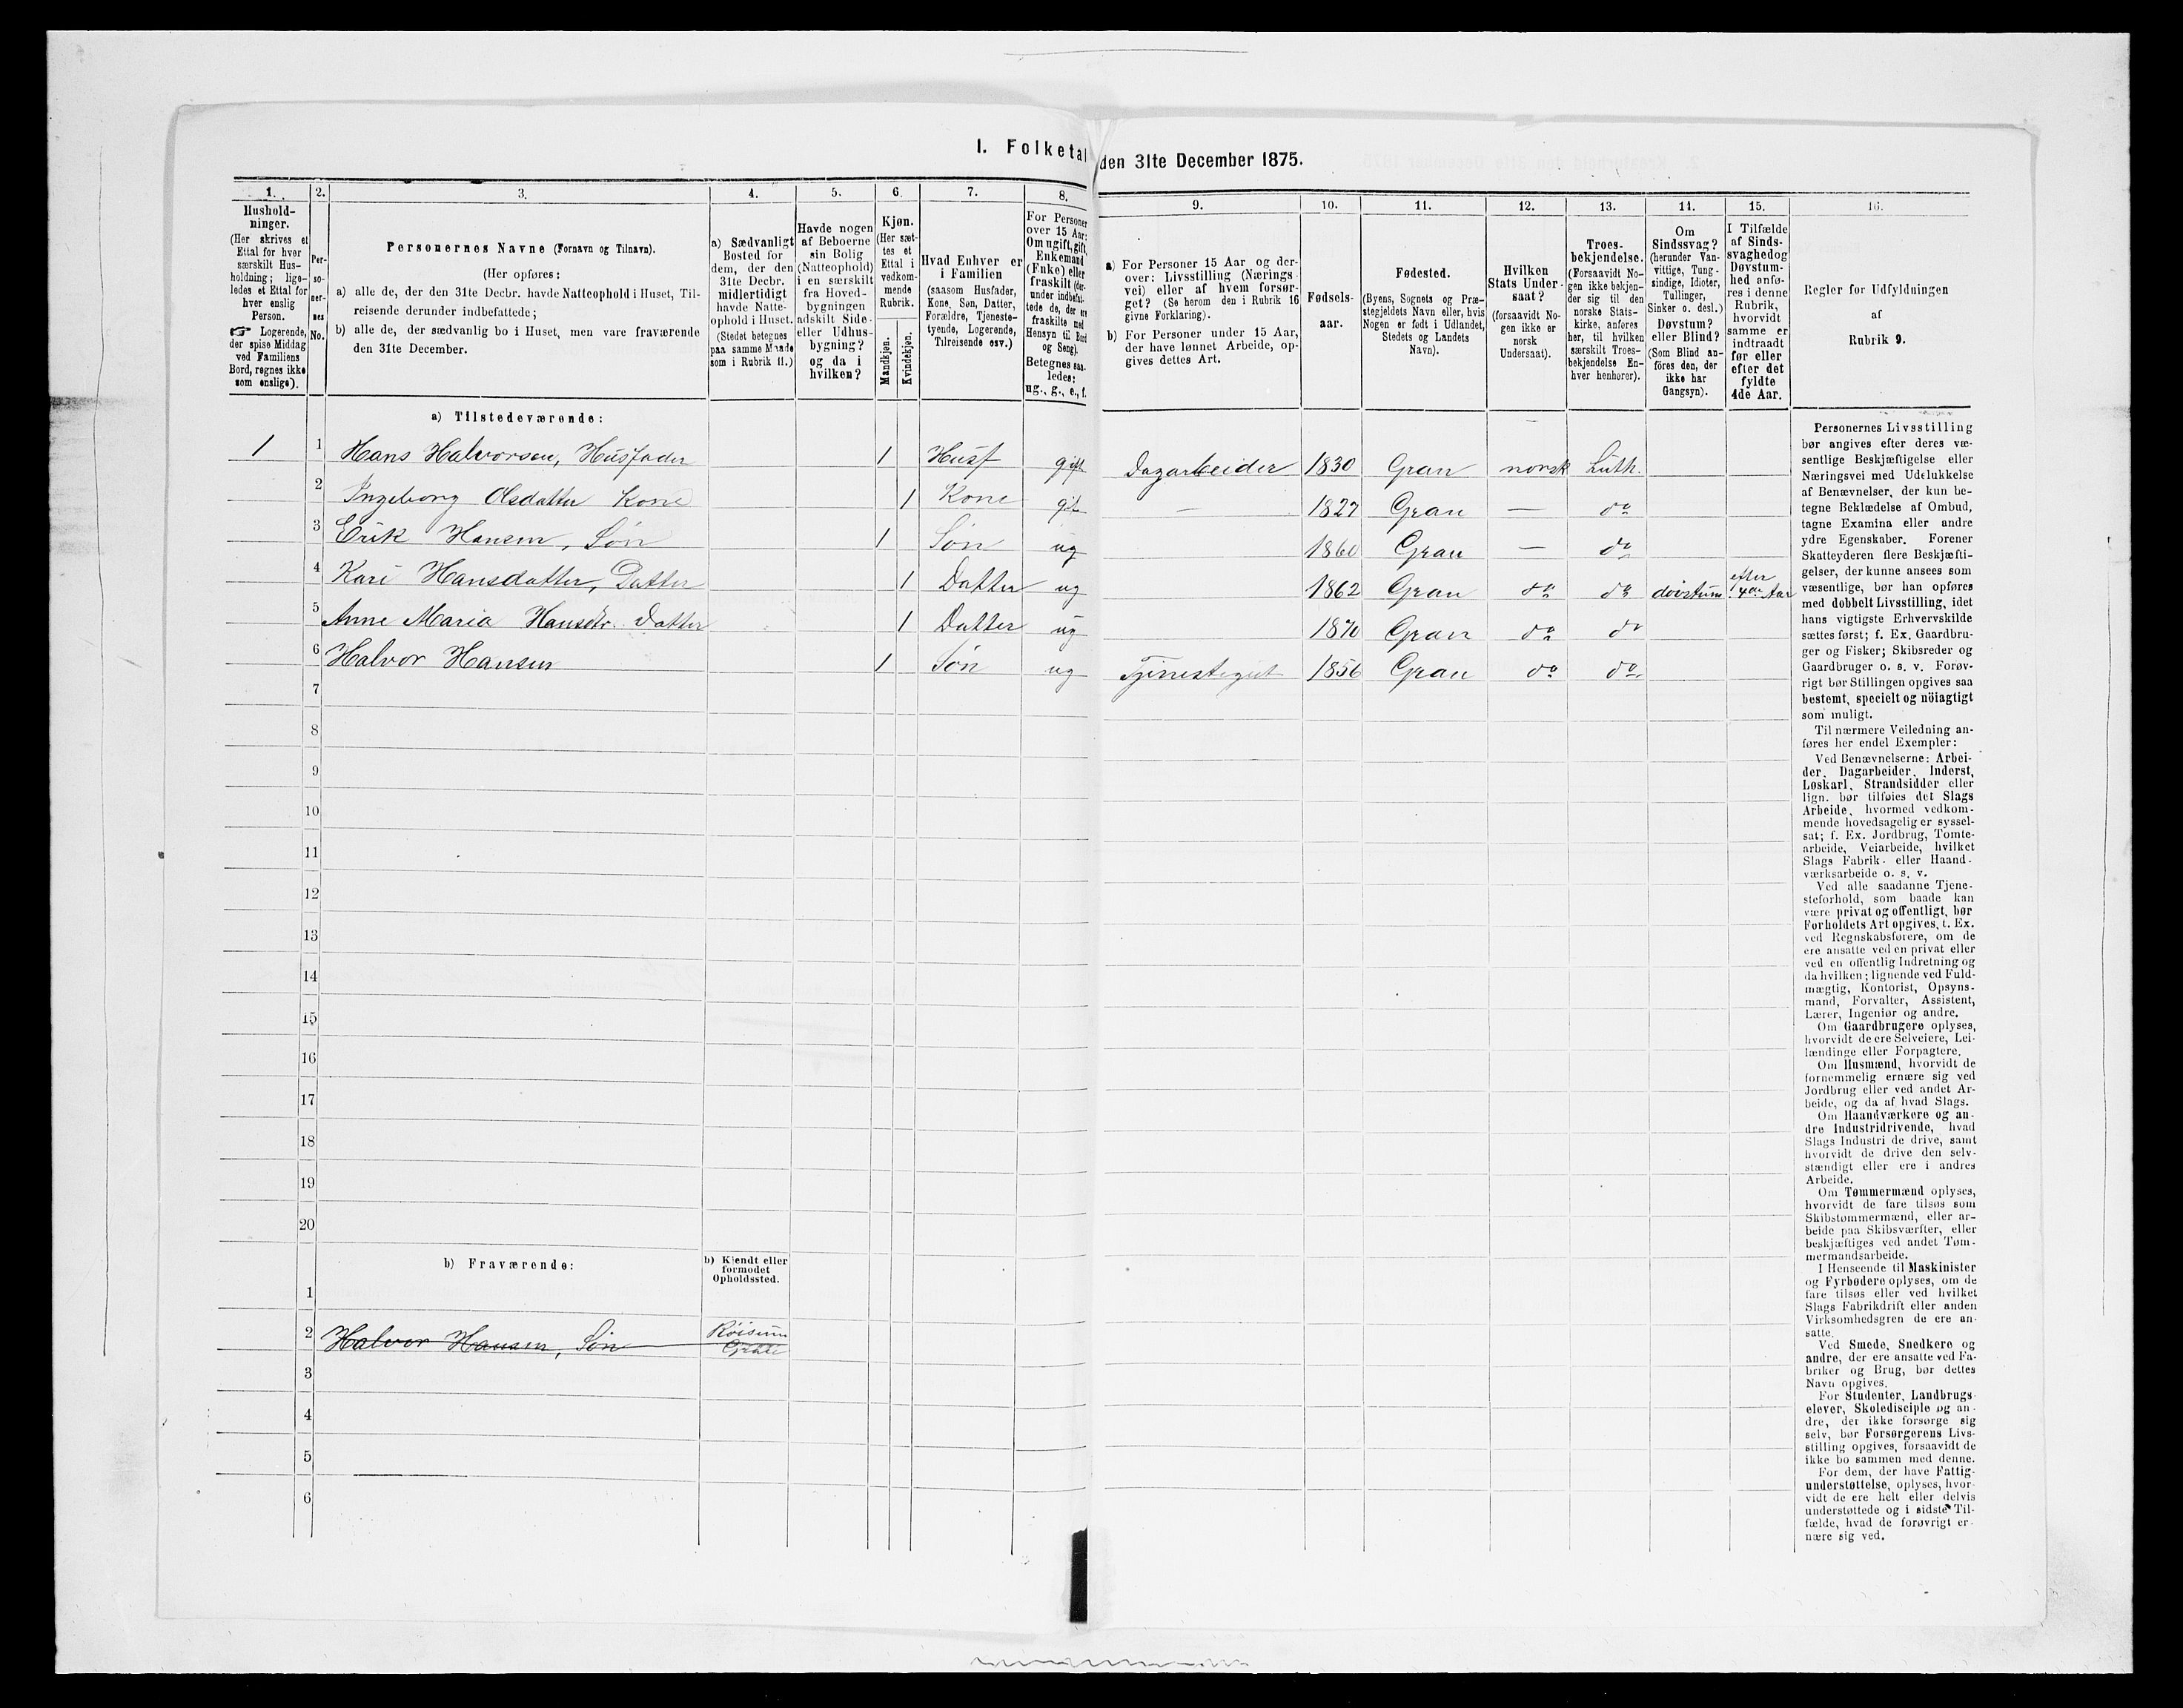 I. Folketal den 31te December 1875.
1. 2. 3. 4. 5. 6. 7. 8. 9. 10. 11. 12. 13. 14. 15. 16.
Hushold-
ninger.
(Her skrives et
Ettal for hver
særskilt Hus-
holdning; lige-
ledes et Ettal for
hver enslig
Person.
☞ Logerende,
der spise Middag
ved Familiens
Bord, regnes ikke
som enslige).
Per-
so-
ner-
nes
No.
Personernes Navne (Fornavn og Tilnavn).
(Her opføres:
a) alle de, der den 31te Decbr. havde Natteophold i Huset, Til-
reisende derunder indbefattede;
b) alle de, der sædvanlig bo i Huset, men vare fraværende
den 31te December.
a) Sædvanligt
Bosted for
dem, der den
31te Decbr.
midlertidigt
havde Natte-
ophold i Huset.
(Stedet betegnes
paa samme Maade
som i Rubrik 11.)
Havde nogen
af Beboerne
sin Bolig
(Natteophold)
i en særskilt
fra Hoved-
bygningen
adskilt Side-
eller Udhus-
bygning?
og da i
hvilken?
Kjøn.
(Her sæt-
tes et
Ettal i
vedkom-
mende
Rubrik.
Mandkjøn.
Kvindekjøn.
Hvad Enhver er
i Familien
(saasom Husfader,
Kone, Søn, Datter,
Forældre, Tjeneste-
tyende, Logerende,
Tilreisende osv.)
For Personer
over 15 Aar:
Om ugift, gift,
Enkemand
(Enke) eller
fraskilt (der-
under indbefat-
tede de, der ere
fraskilte med
Hensyn til Bord
og Seng).
Betegnes saa-
ledes:
ug., g., e., f.
a) For Personer 15 Aar og der-
over: Livsstilling (Nærings-
vei) eller af hvem forsør-
get? (Se herom den i Rubrik 16
givne Forklaring).
b) For Personer under 15 Aar,
der have lønnet Arbeide, op-
gives dettes Art.
Fødsels-
aar.
Fødested.
(Byens, Sognets og Præ-
stegjeldets Navn eller, hvis
Nogen er født i Udlandet,
Stedets og Landets
Navn).
Hvilken
Stats Under-
saat?
(forsaavidt No-
gen ikke er
norsk
Undersaat).
Troes-
bekjendelse.
(Forsaavidt No-
gen ikke bekjen-
der sig til den
norske Stats-
kirke, anføres
her, til hvilken
særskilt Troes-
bekjendelse En-
hver henhører).
Om
Sindssvag?
(herunder Van-
vittige, Tung-
sindige, Idioter,
Tullinger,
Sinker o. desl.)
Døvstum?
eller Blind?
(Som Blind an-
föres den, der
ikke har
Gangsyn).
I Tilfælde
af Sinds-
svaghed og
Døvstum-
hed anfø-
res i denne
Rubrik,
hvorvidt
samme er
indtraadt
før eller
efter det
fyldte
4de Aar.
Regler for Udfyldningen
af
Rubrik 9.
a) Tilstedeværende:
1 1 Hans Halvorsen, Husfader 1 Husf gift Dagarbeider 1830 Gran norsk Luth.
2 Ingeborg Olsdatter Kone 1 Kone gift — 1827 Gran — do
3 Erik Hansen, Søn 1 Søn ug 1860 Gran — do
4 Kari Hansdatter, Datter 1 Datter ug 1862 Gran do do døvstum efter 4de Aar
5 Anne Maria Hansdtr. Datter 1 Datter ug 1870 Gran do do
6 Halvor Hansen 1 Søn ug Tjenestegut 1856 Gran do do
7
8
9
10
11
12
13
14
15
16
17
18
19
20
b) Fraværende:
b) Kjendt eller
formodet
Opholdssted.
1
2 Halvor Hansen, Søn Röisum
3
4
5
6
Personernes Livsstilling
bør angives efter deres væ-
sentlige Beskjæftigelse eller
Næringsvei med Udelukkelse
af Benævnelser, der kun be-
tegne Beklædelse af Ombud,
tagne Examina eller andre
ydre Egenskaber. Forener
Skatteyderen flere Beskjæfti-
gelser, der kunne ansees som
væsentlige, bør han opføres
med dobbelt Livsstilling, idet
hans vigtigste Erhvervskilde
sættes først; f. Ex. Gaardbru-
ger og Fisker; Skibsreder og
Gaardbruger o. s. v. Forøv-
rigt bør Stillingen opgives saa
bestemt, specielt og nöiagtigt
som muligt.
Til nærmere Veiledning an-
føres her endel Exempler:
Ved Benævnelserne: Arbei-
der, Dagarbeider, Inderst,
Løskarl, Strandsidder eller
lign. bør tilføies det Slags
Arbeide, hvormed vedkom-
mende hovedsagelig er syssel-
sat; f. Ex. Jordbrug, Tomte-
arbeide, Veiarbeide, hvilket
Slags Fabrik- eller Haand-
værksarbeide o. s. v.
Ved alle saadanne Tjene-
steforhold, som baade kan
være privat og offentligt, bør
Forholdets Art opgives, t. Ex.
ved Regnskabsførere, om de
ere ansatte ved en privat eller
ved en offentlig Indretning og
da hvilken; lignende ved Fuld-
mægtig, Kontorist, Opsyns-
mand, Forvalter, Assistent,
Lærer, Ingeniør og andre.
Om Gaardbrugere oplyses,
hvorvidt de ere Selveiere, Lei-
lændinge eller Forpagtere.
Om Husmænd, hvorvidt de
fornemmelig ernære sig ved
Jordbrug eller ved andet Ar-
beide, og da af hvad Slags.
Om Haandværkere og an-
dre Industridrivende, hvad
Slags Industri de drive, samt
hvorvidt de drive den selv-
stændigt eller ere i andres
Arbeide.
Om Tømmermænd oplyses,
hvorvidt de fare tilsøs som
Skibstømmermænd, eller ar-
beide paa Skibsværfter, eller
beskjæftiges ved andet Tøm-
mermandsarbeide.
I Henseende til Maskinister
og Fyrbødere oplyses, om de
fare tilsøs eller ved hvilket
Slags Fabrikdrift eller anden
Virksomhedsgren de ere an-
satte.
Ved Smede, Snedkere og
andre, der ere ansatte ved Fa-
briker og Brug, bør dettes
Navn opgives.
For Studenter, Landbrugs-
elever, Skoledisciple og an-
dre, der ikke forsørge sig
selv, bør Forsørgerens Livs-
stilling opgives, forsaavidt de
ikke bo sammen med denne.
For dem, der have Fattig-
understøttelse, oplyses, hvor-
vidt de ere helt eller delvis
understøttede og i sidste Til-
fælde, hvad de forøvrigt er-
nære sig ved.